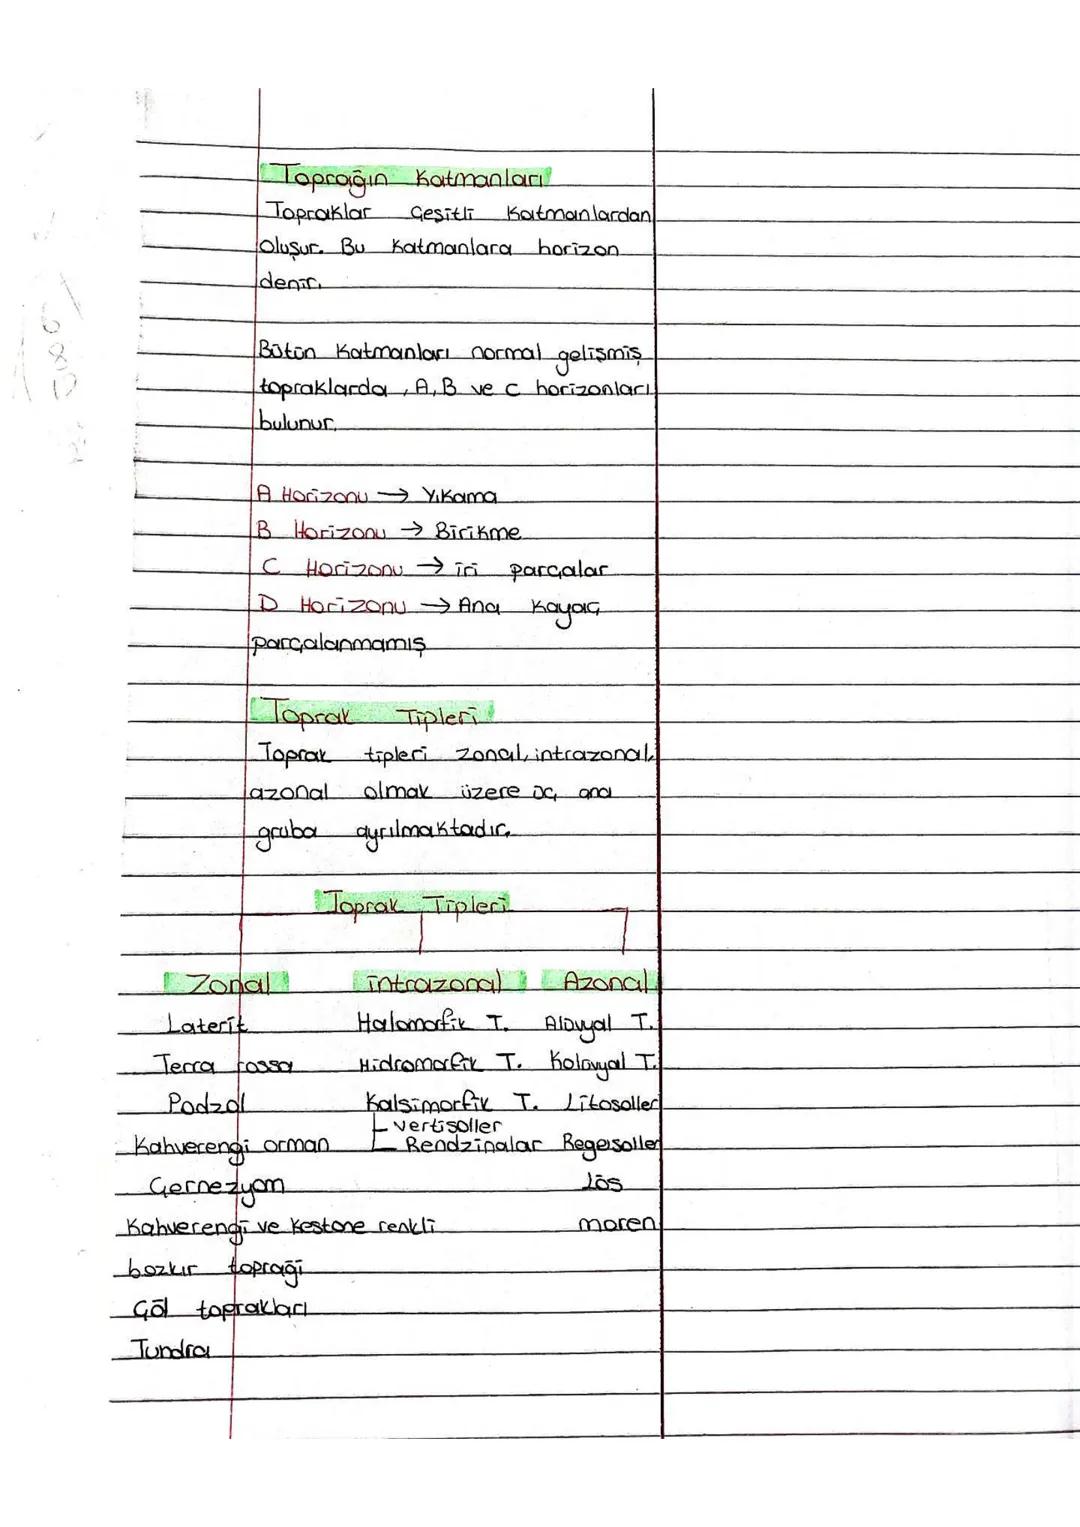 Toprağın Katmanları
Topraklar Çeşitli Katmanlardan
oluşur. Bu Katmanlara horizon
denir.
Bütün Katmanları normal gelişmiş
topraklarda, A, B ve C horizonları
bulunur.
A Horizonu → Yıkama
B Horizonu → Birikme
C Horizonu → iri parçalar
D Horizonu → Ana Kayaç
parçalanmamış
Toprak Tipleri
Toprak tipleri zonal, intrazonal,
azonal olmak üzere üç ana
gruba ayrılmaktadır.
Toprak Tipleri
Zonal intrazonal Azonal
Laterit Halomorfik T. Alüvyal T.
Terra rossa Hidromorfik T. Kolüvyal T.
Podzol Kalsimorfik T. Litosoller
vertisoller
Kahverengi orman Rendzinalar Regosoller
Çernezyom Lös
Kahverengi ve Kestane renkli moren
bozkır toprağı
Çöl toprakları
Tundra